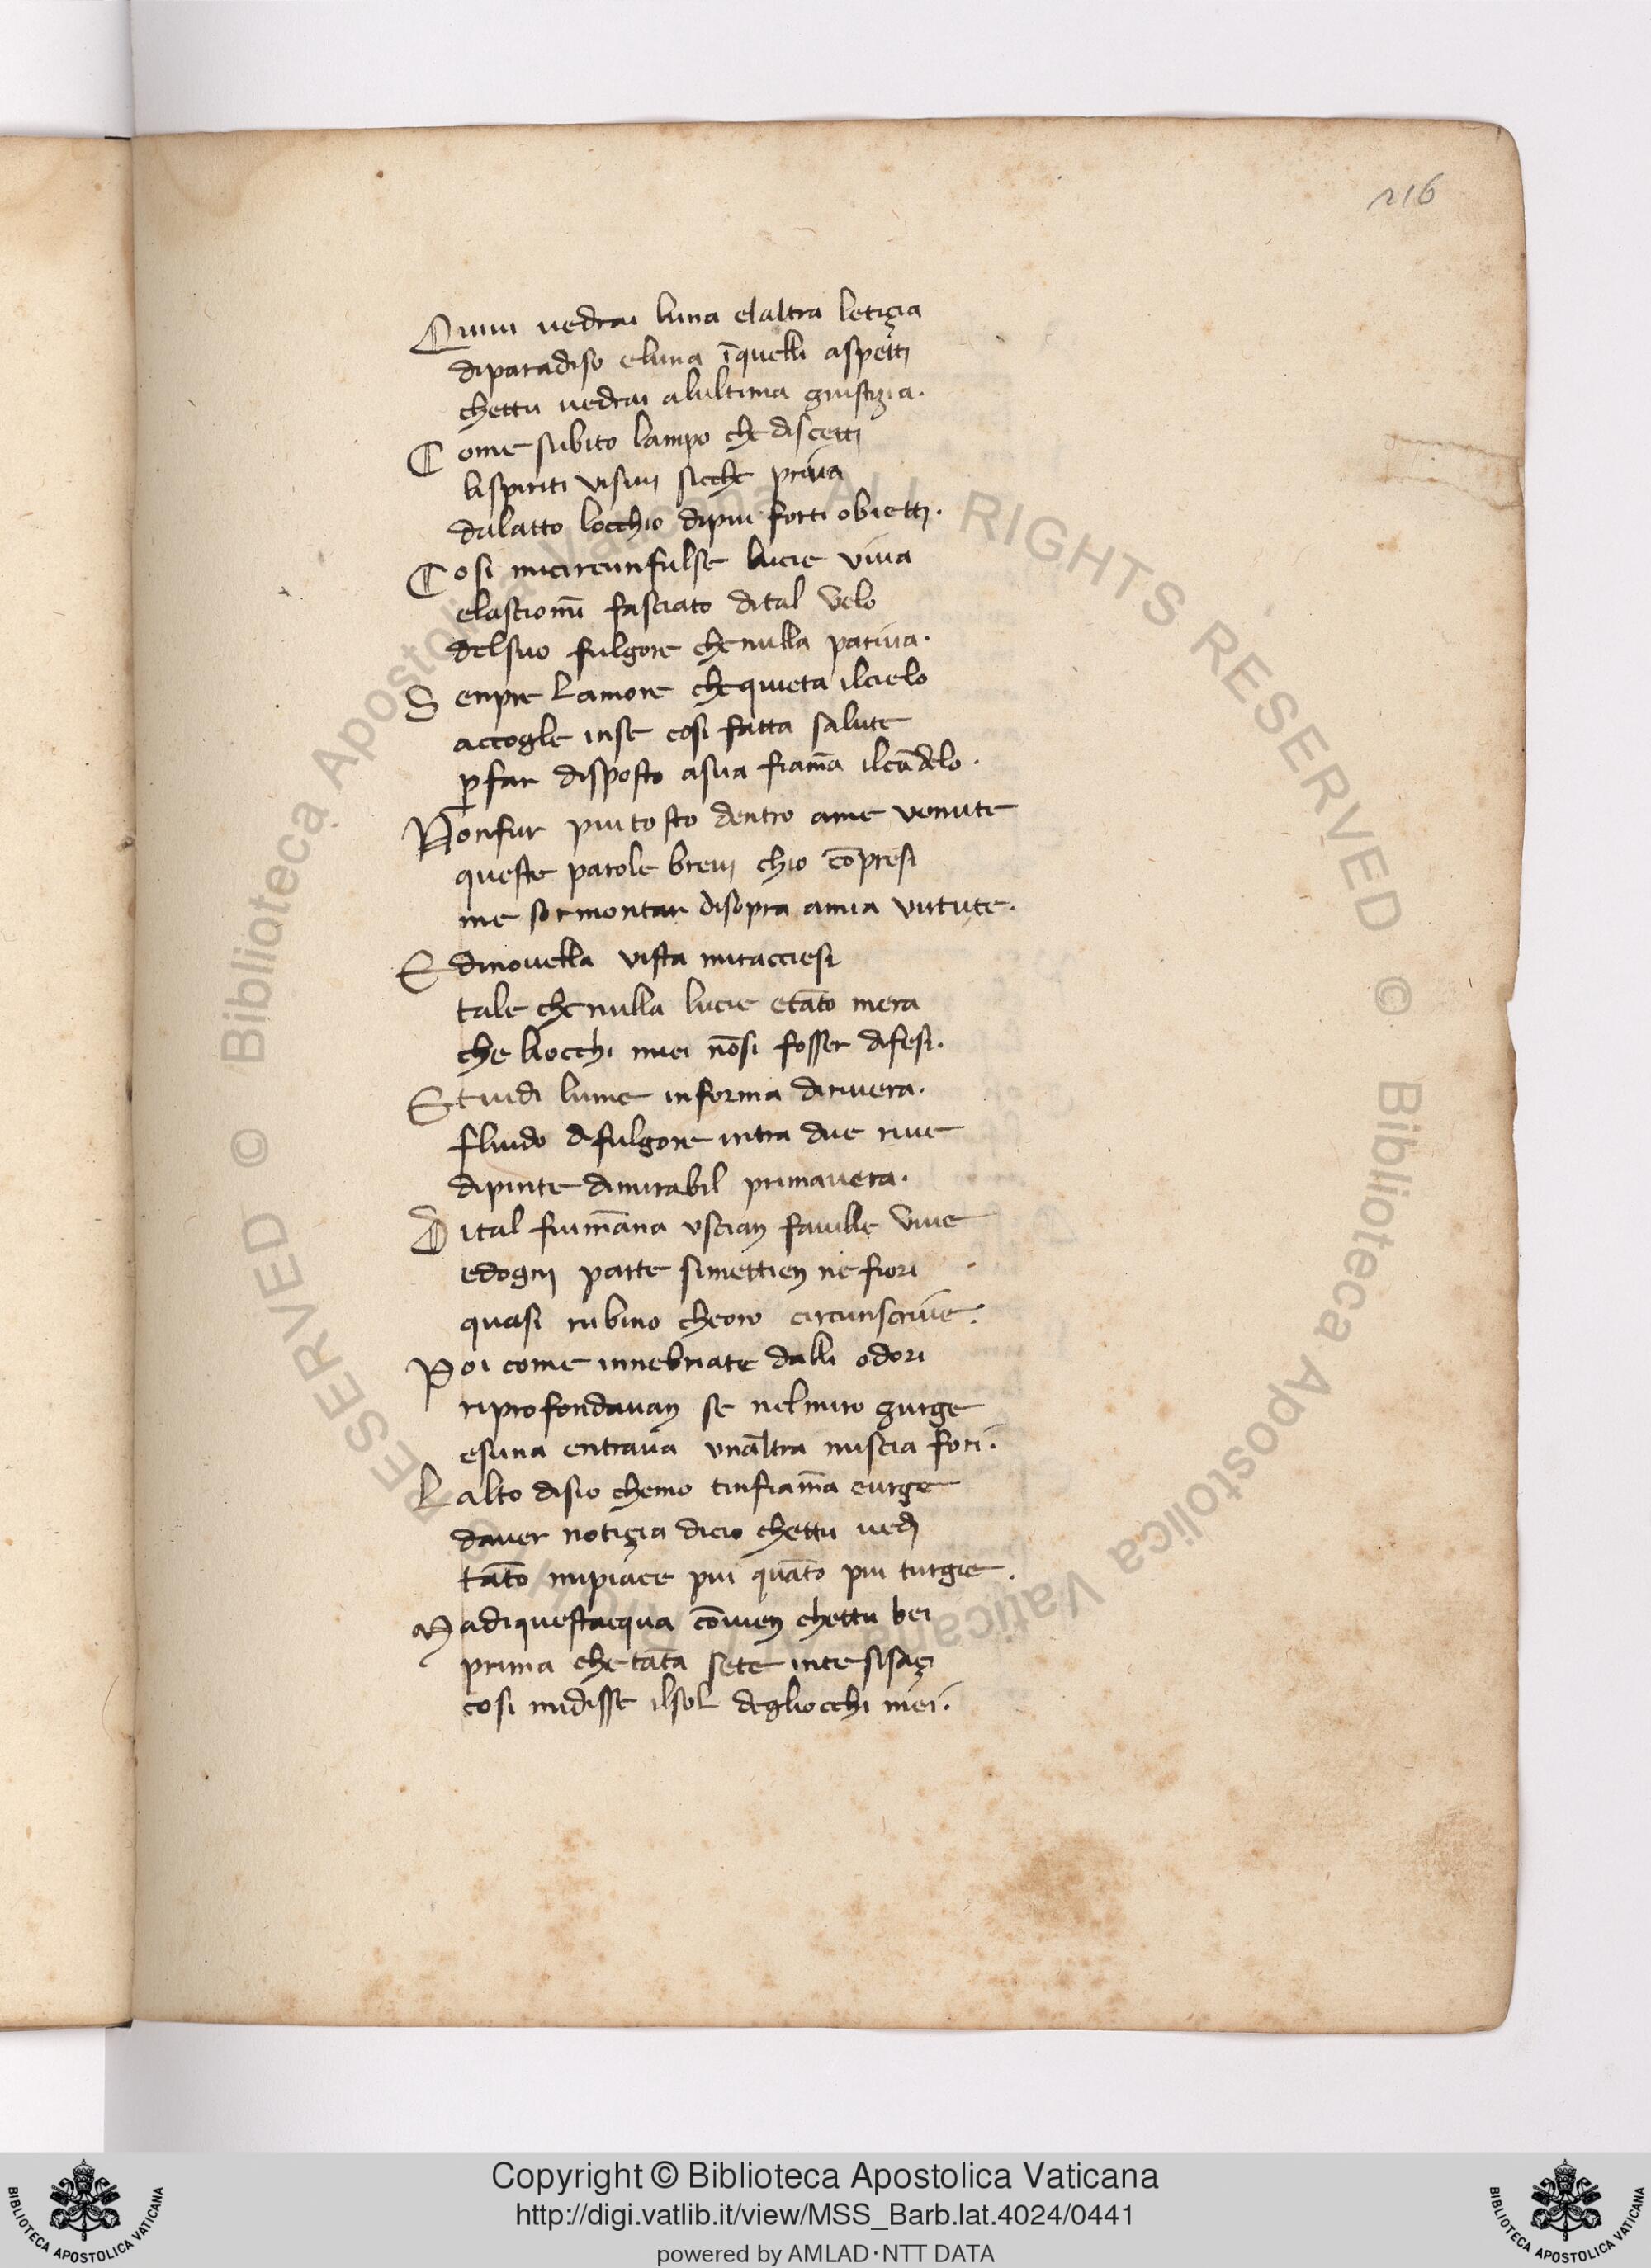 216
Quiui uedrai luna elaltra letiçia
diparadiso eluna īquelli aspetti
chettu uedrai alultima giustizia.
Come subito lampo che discetti
lispiriti visiui sicche priua
dalatto locchio dipiu forti obietti.
Cosi micircunfulse lucie viua
elasciomī fasciato dital velo
delsuo fulgore che nulla pariua.
Senpre lamore chequieta ilcielo
accogle inse cosi fatta salute
ꝑfar disposto asua fiam̄a ilcādelo.
Nonfur piutosto dentro ame venute
queste parole breui chio cōpresi
me sormontar disopra amia uirtute.
E dinouella vista miracciesi
tale che nulla lucie etāto mera
che liocchi miei nōsi fosser difesi.
Et uidi lume informa diriuera.
fluido di fulgore intra due riue
dipinte dimirabil primauera.
Dital fium̄ana vscian fauille viue
edogni parte simettien ne fiori
quasi rubino cheoro circunscriue.
Poi come innebriate dalli odori
riprofondauan se nelmiro gurge
esuna entraua vnaltra nuscia fori.
Lalto disio chemo tinfiam̄a eurge
dauer notiçia dicio chettu uedi
tāto mipiace piu quāto piu turgie.
Madiquestaequa cōuien chettu bei
prima che tāta sete inte sisaçi
cosi midisse ilsol degliocchi miei.
© Biblioteca Apostolica Vaticana ALL RIGHTS RESERVED
© Biblioteca Apostolica Vaticana ALL RIGHTS RESERVED
Copyright © Biblioteca Apostolica Vaticana
http://digi.vatlib.it/view/MSS_Barb.lat.4024/0441
powered by AMLAD·NTT DATA
BIBLIOTECA APOSTOLICA VATICANA
BIBLIOTECA APOSTOLICA VATICANA